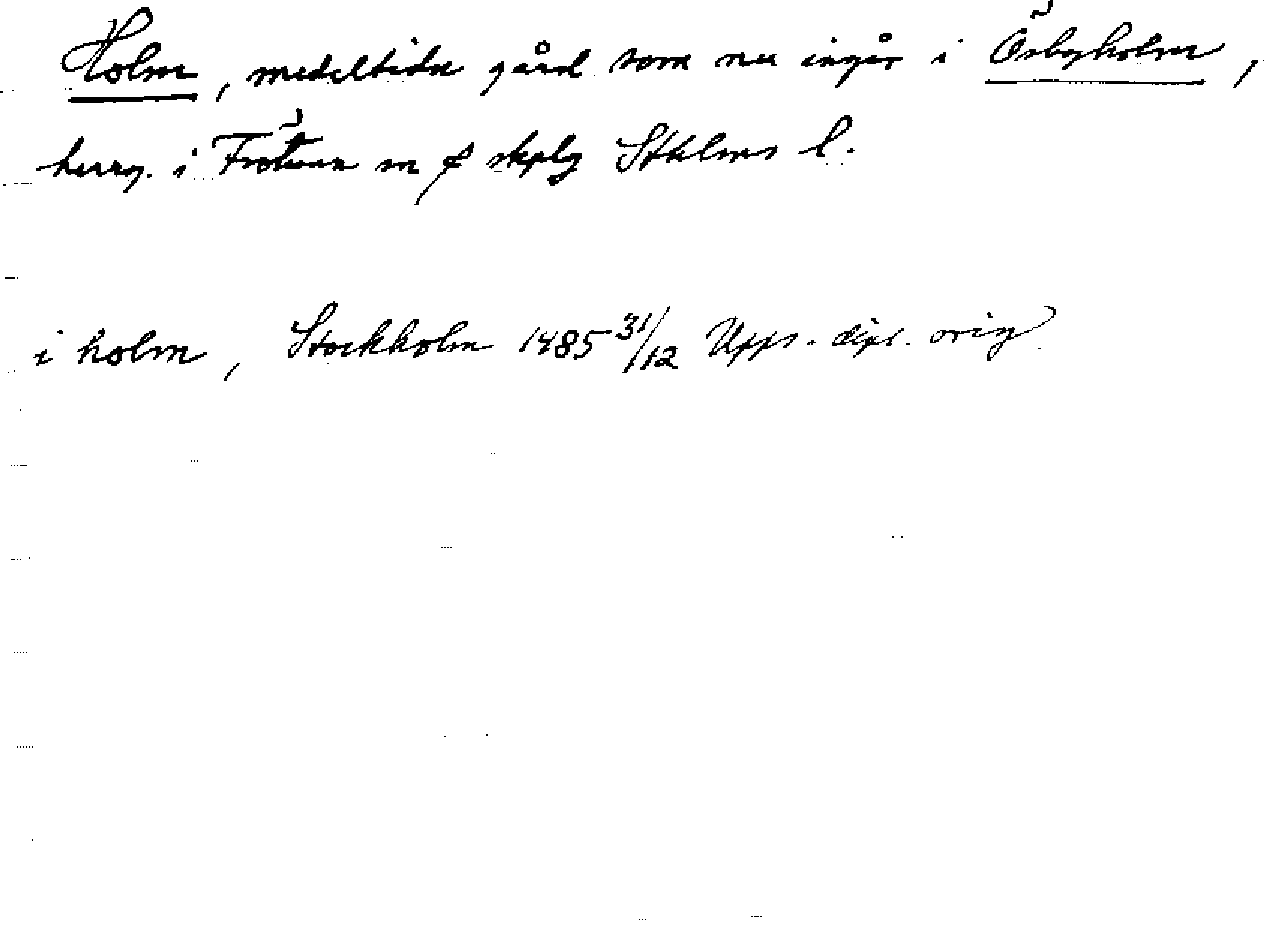 Holm, medeltida gård som nu ingår i Össbyholm,
herrg. i Frötuna m fl skplg Sthlms l.
i holm, Stockholm 1485 31/12 Upps. dipl. orig